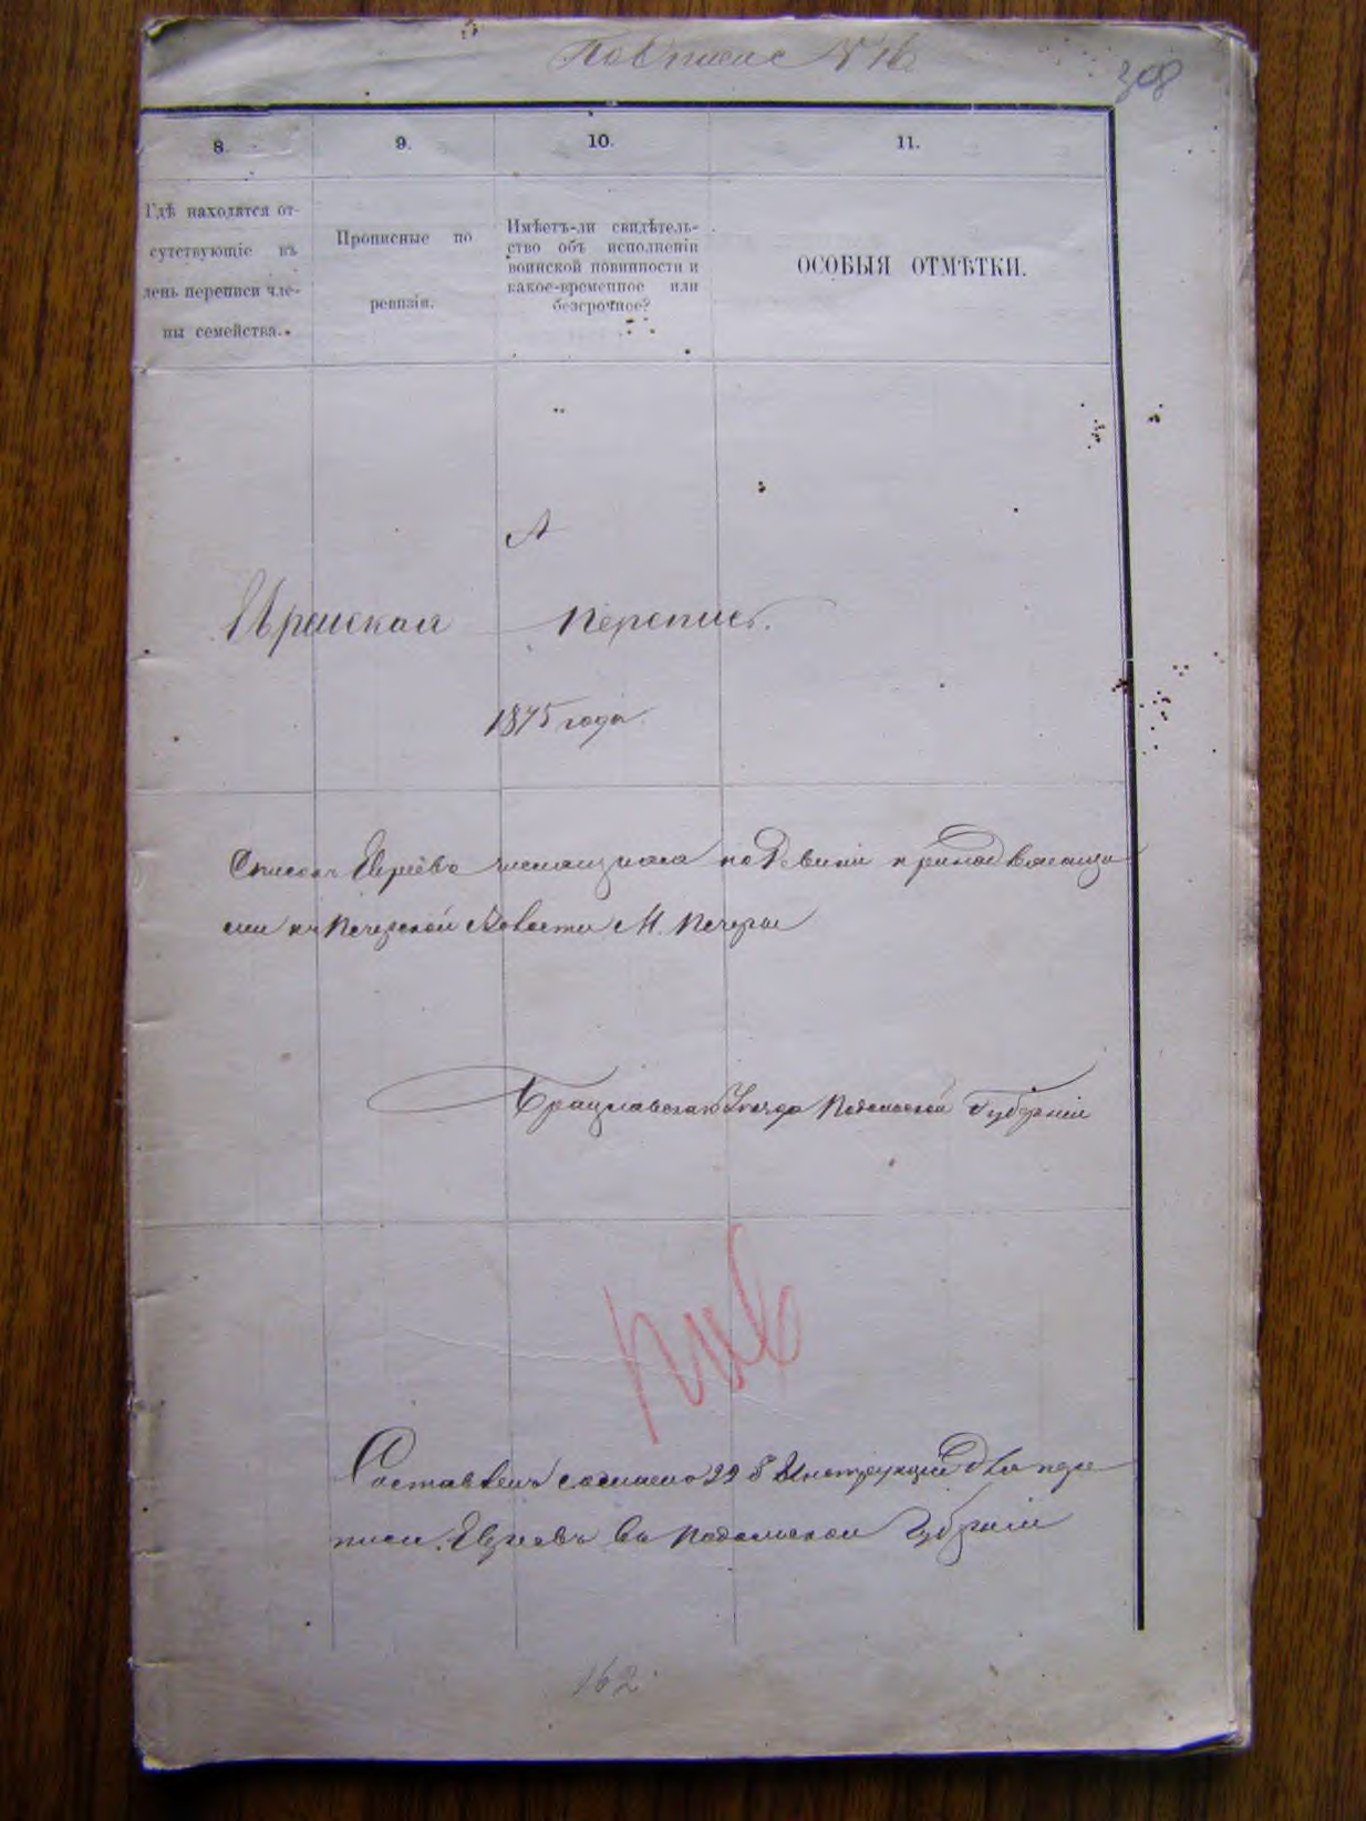 По описи № 16
308
8.
9.
10.
11.
Гдѣ находятся от-
сутствующіе въ
день переписи чле-
ны семейства.
Прописные по
ревизіи.
Имѣетъ-ли свидѣтель-
ство объ исполненіи
воинской повинности и
какое-временное или
безсрочное?
ОСОБЫЯ ОТМѢТКИ.
А
Еврейская перепись.
1875 года
Списокъ Евреевъ
къ Печерской Волости М. Печеры
Брацлавскаго Уѣзда Подольской Губерніи
Составленъ согласно 22 § Инструкціи для пере
писи Евреевъ въ Подольской Губерніи
162